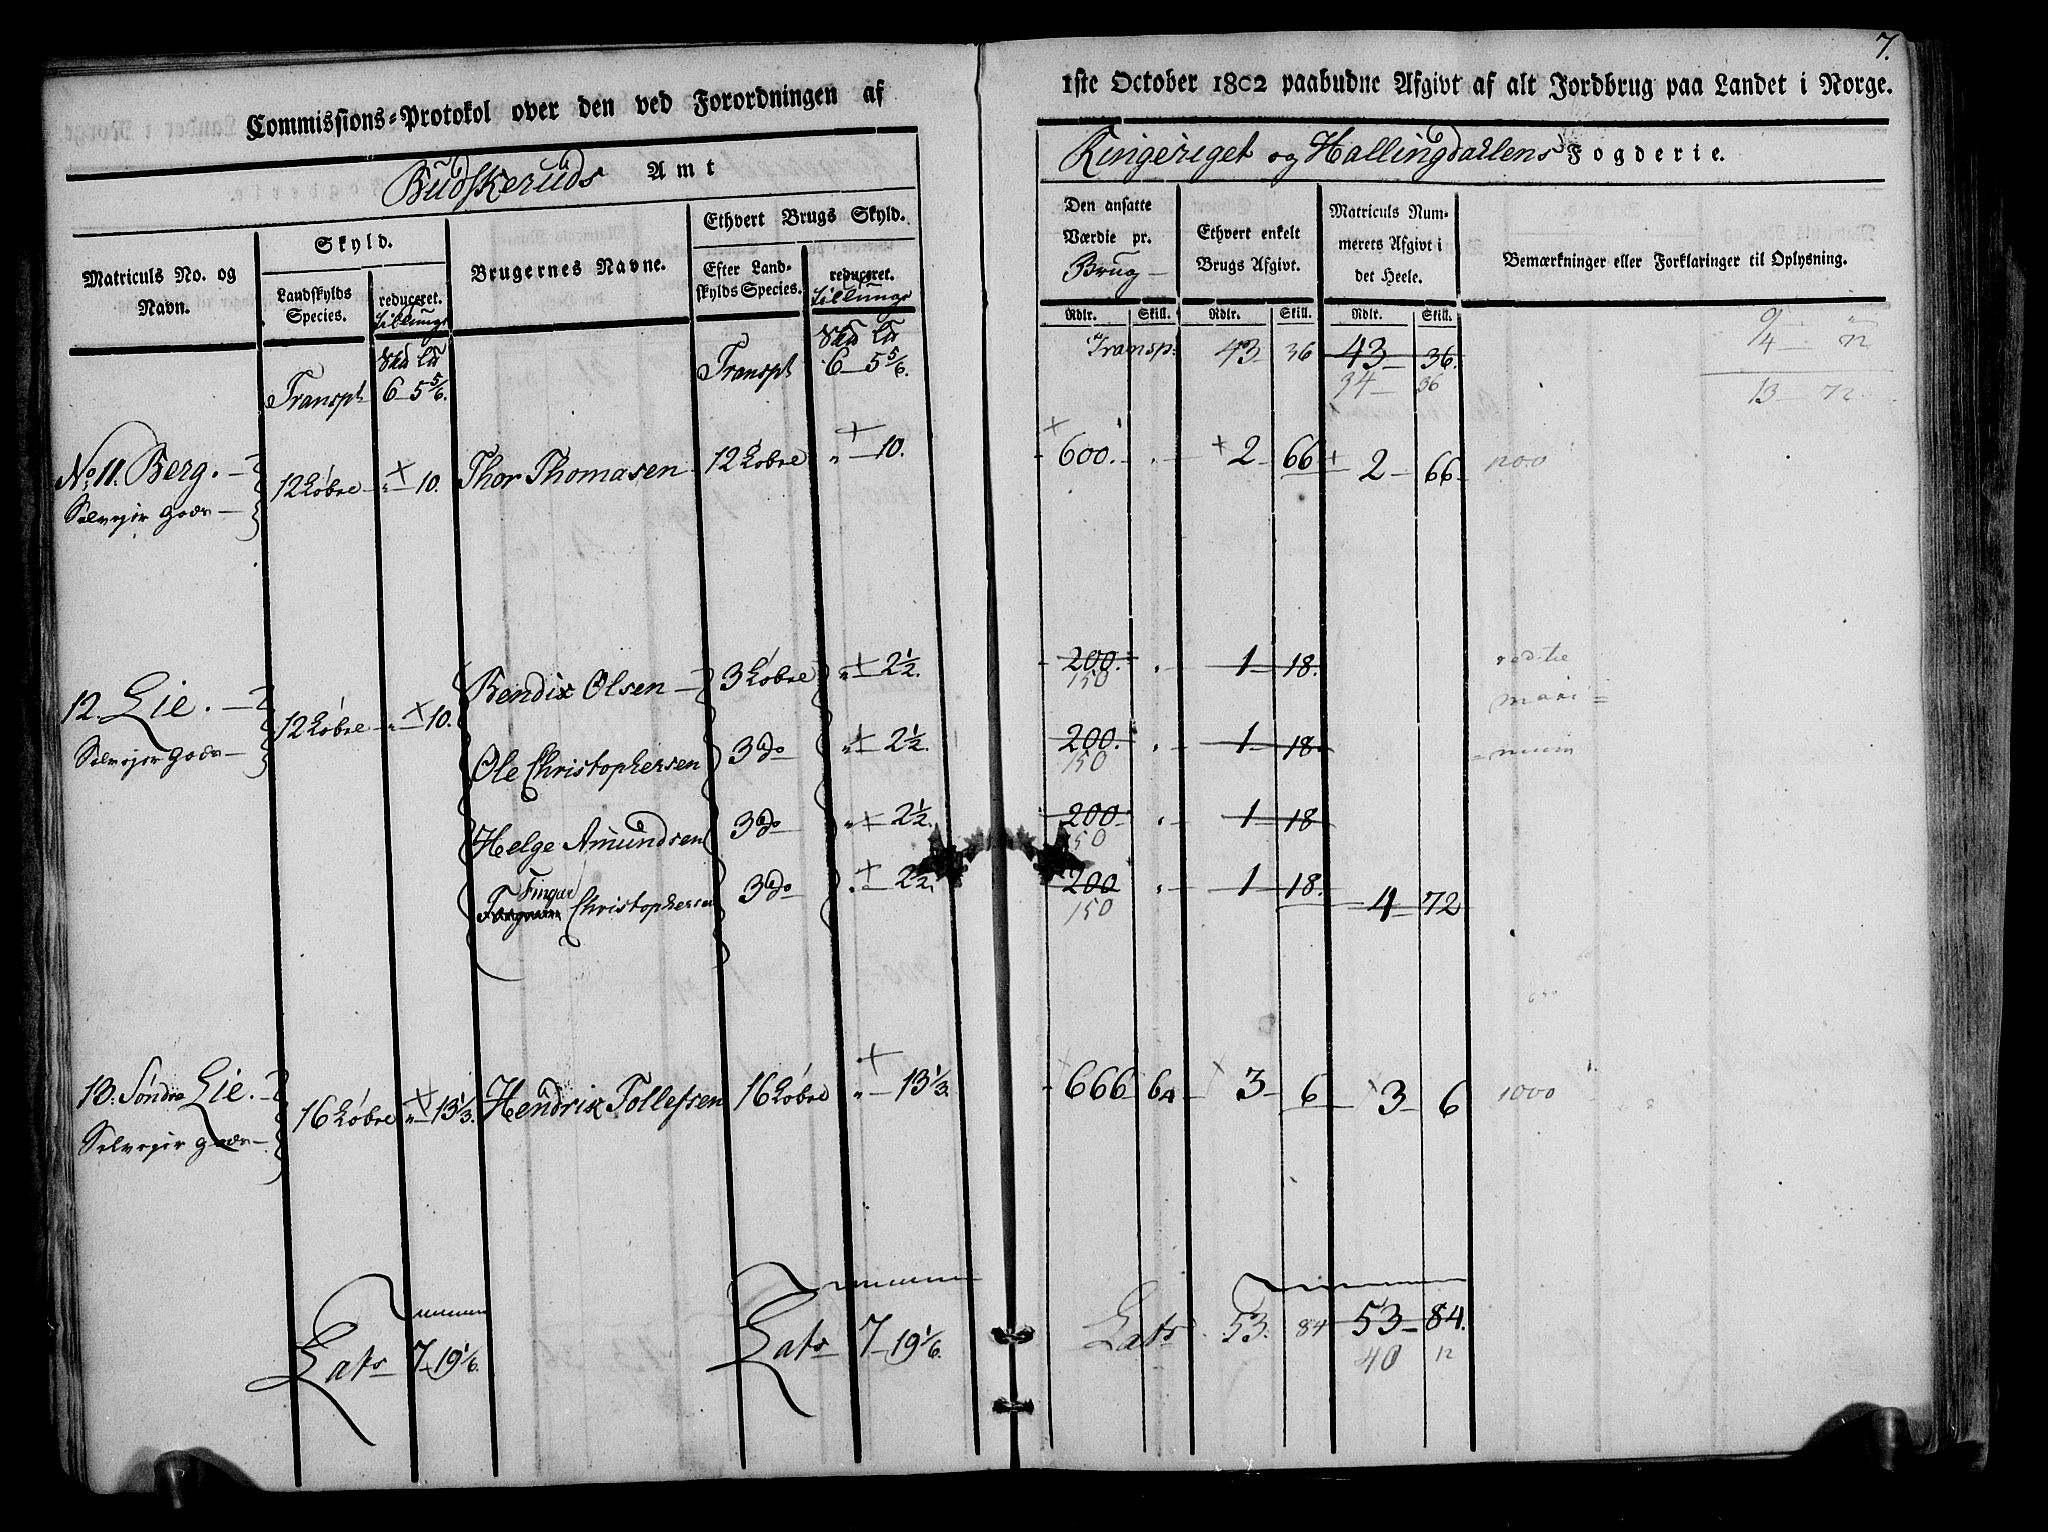 7.
Commissions-Protokol over den ved Forordningen af
1ste October 1802 paabudne Afgivt af alt Jordbrug paa Landet i Norge.
Budskeruds Amt
Ringeriget og Hallingdahlens Fogderie.
Matriculs No. og Navn.
Skyld.
Landskylds Species.
reduceret.
Brugernes Navne.
Ethvert Brugs Skyld.
Efter Landskylds Species.
reduceret.
Den ansatte Værdie pr. Brug
Ethvert enkelt Brugs Afgivt.
Matriculs Nummerets Afgivt i det Heele.
Bemærkninger eller Forklaringer til Oplysning.
Rdlr. Skill. Rdlr. Skill. Rdlr. Skill.
Transpt 6 5 5/6. Transpt 6 5 5/6. Transp: 43 36 43 36.
34 36
13 72
No 11. Berg. 12 Løbe 10. Thor Thomasen 12 Løbe 10. 600. 2 66 2 66
Selvejer Gods
12. Lie. 12 Løbe 10. Bendix Olsen 3 Løbe 2 1/2. 200. 1 18.
150
Selvejer Gods
Ole Christophersen 3 do 2 1/2. 200. 1 18.
150
Helge Amundsen 3 do 2 1/2. 200 1 18
150
Christophersen 3 do 2 1/2. 200 1 18. 4 72
150
13. Søndre Lie. 16 Løbe 13 1/3. Hendrix Tollefsen 16 Løbe 13 1/3. 666 64 3 6 3 6 1000
Selvejer Gods
Lats 7 19 1/6. Lats 7 19 1/6. Lats 53. 84 53 84.
40 12